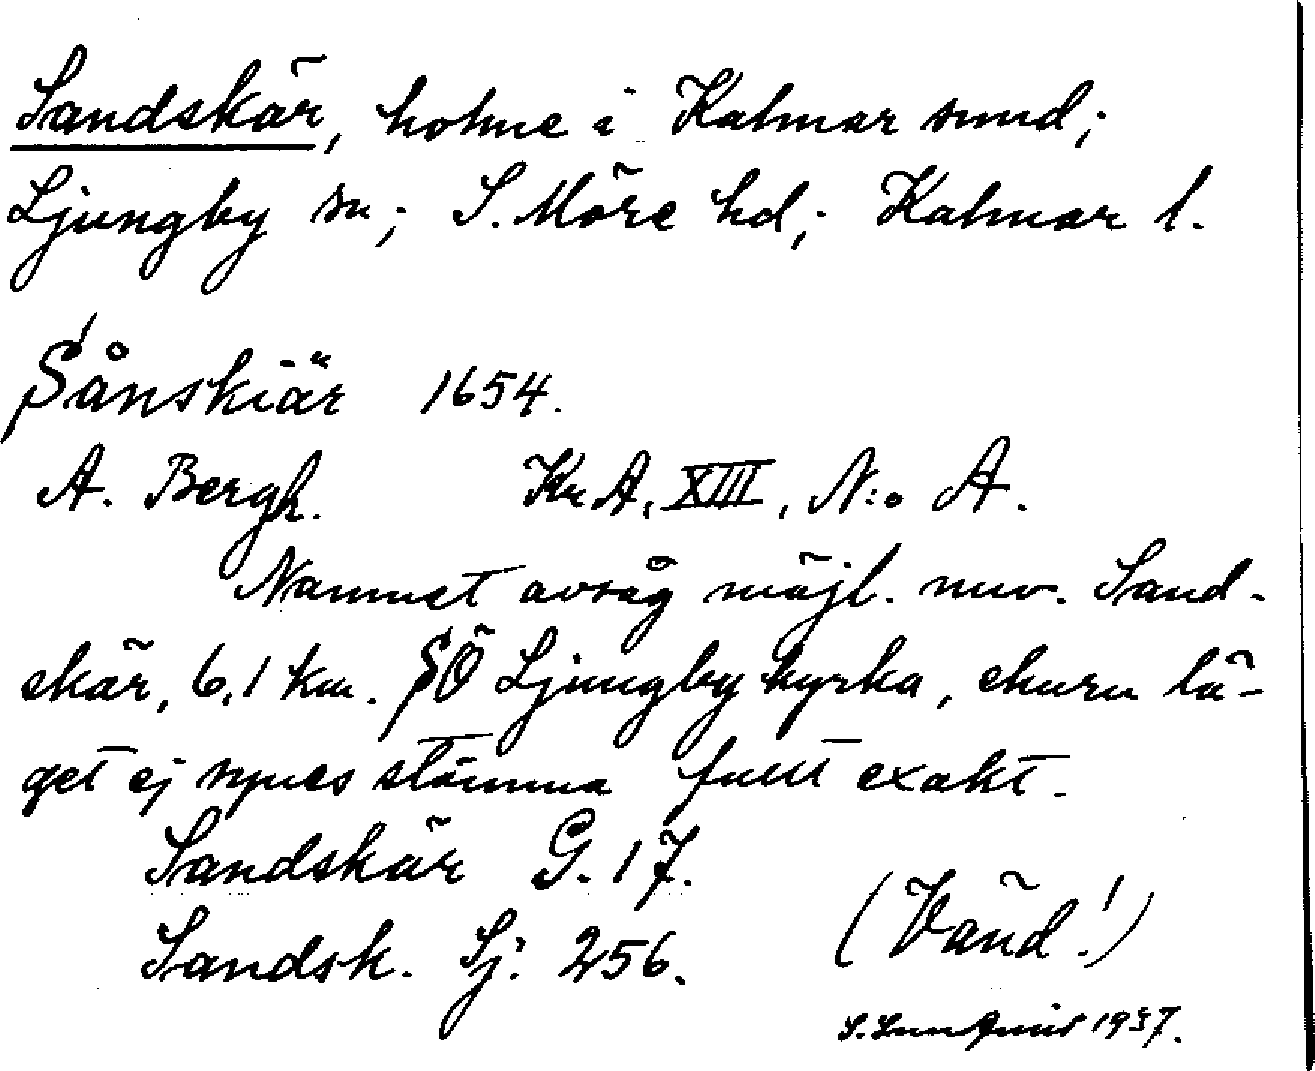 Sandskär, holme i Kalmar sund;
Ljungby sn; S. Möre hd; Kalmar l.
Sånskiär 1654.
A. Bergh. Kr A, XIII, N:o A.
Namnet avsåg möjl. nuv. Sand-
skär, 6,1 km. SÖ Ljungby kyrka, ehuru lä-
get ej synes stämma fullt exakt.
Sandskär G. 17.
Sandsk. Sj. 256.
(Vänd!)
S. 1937.